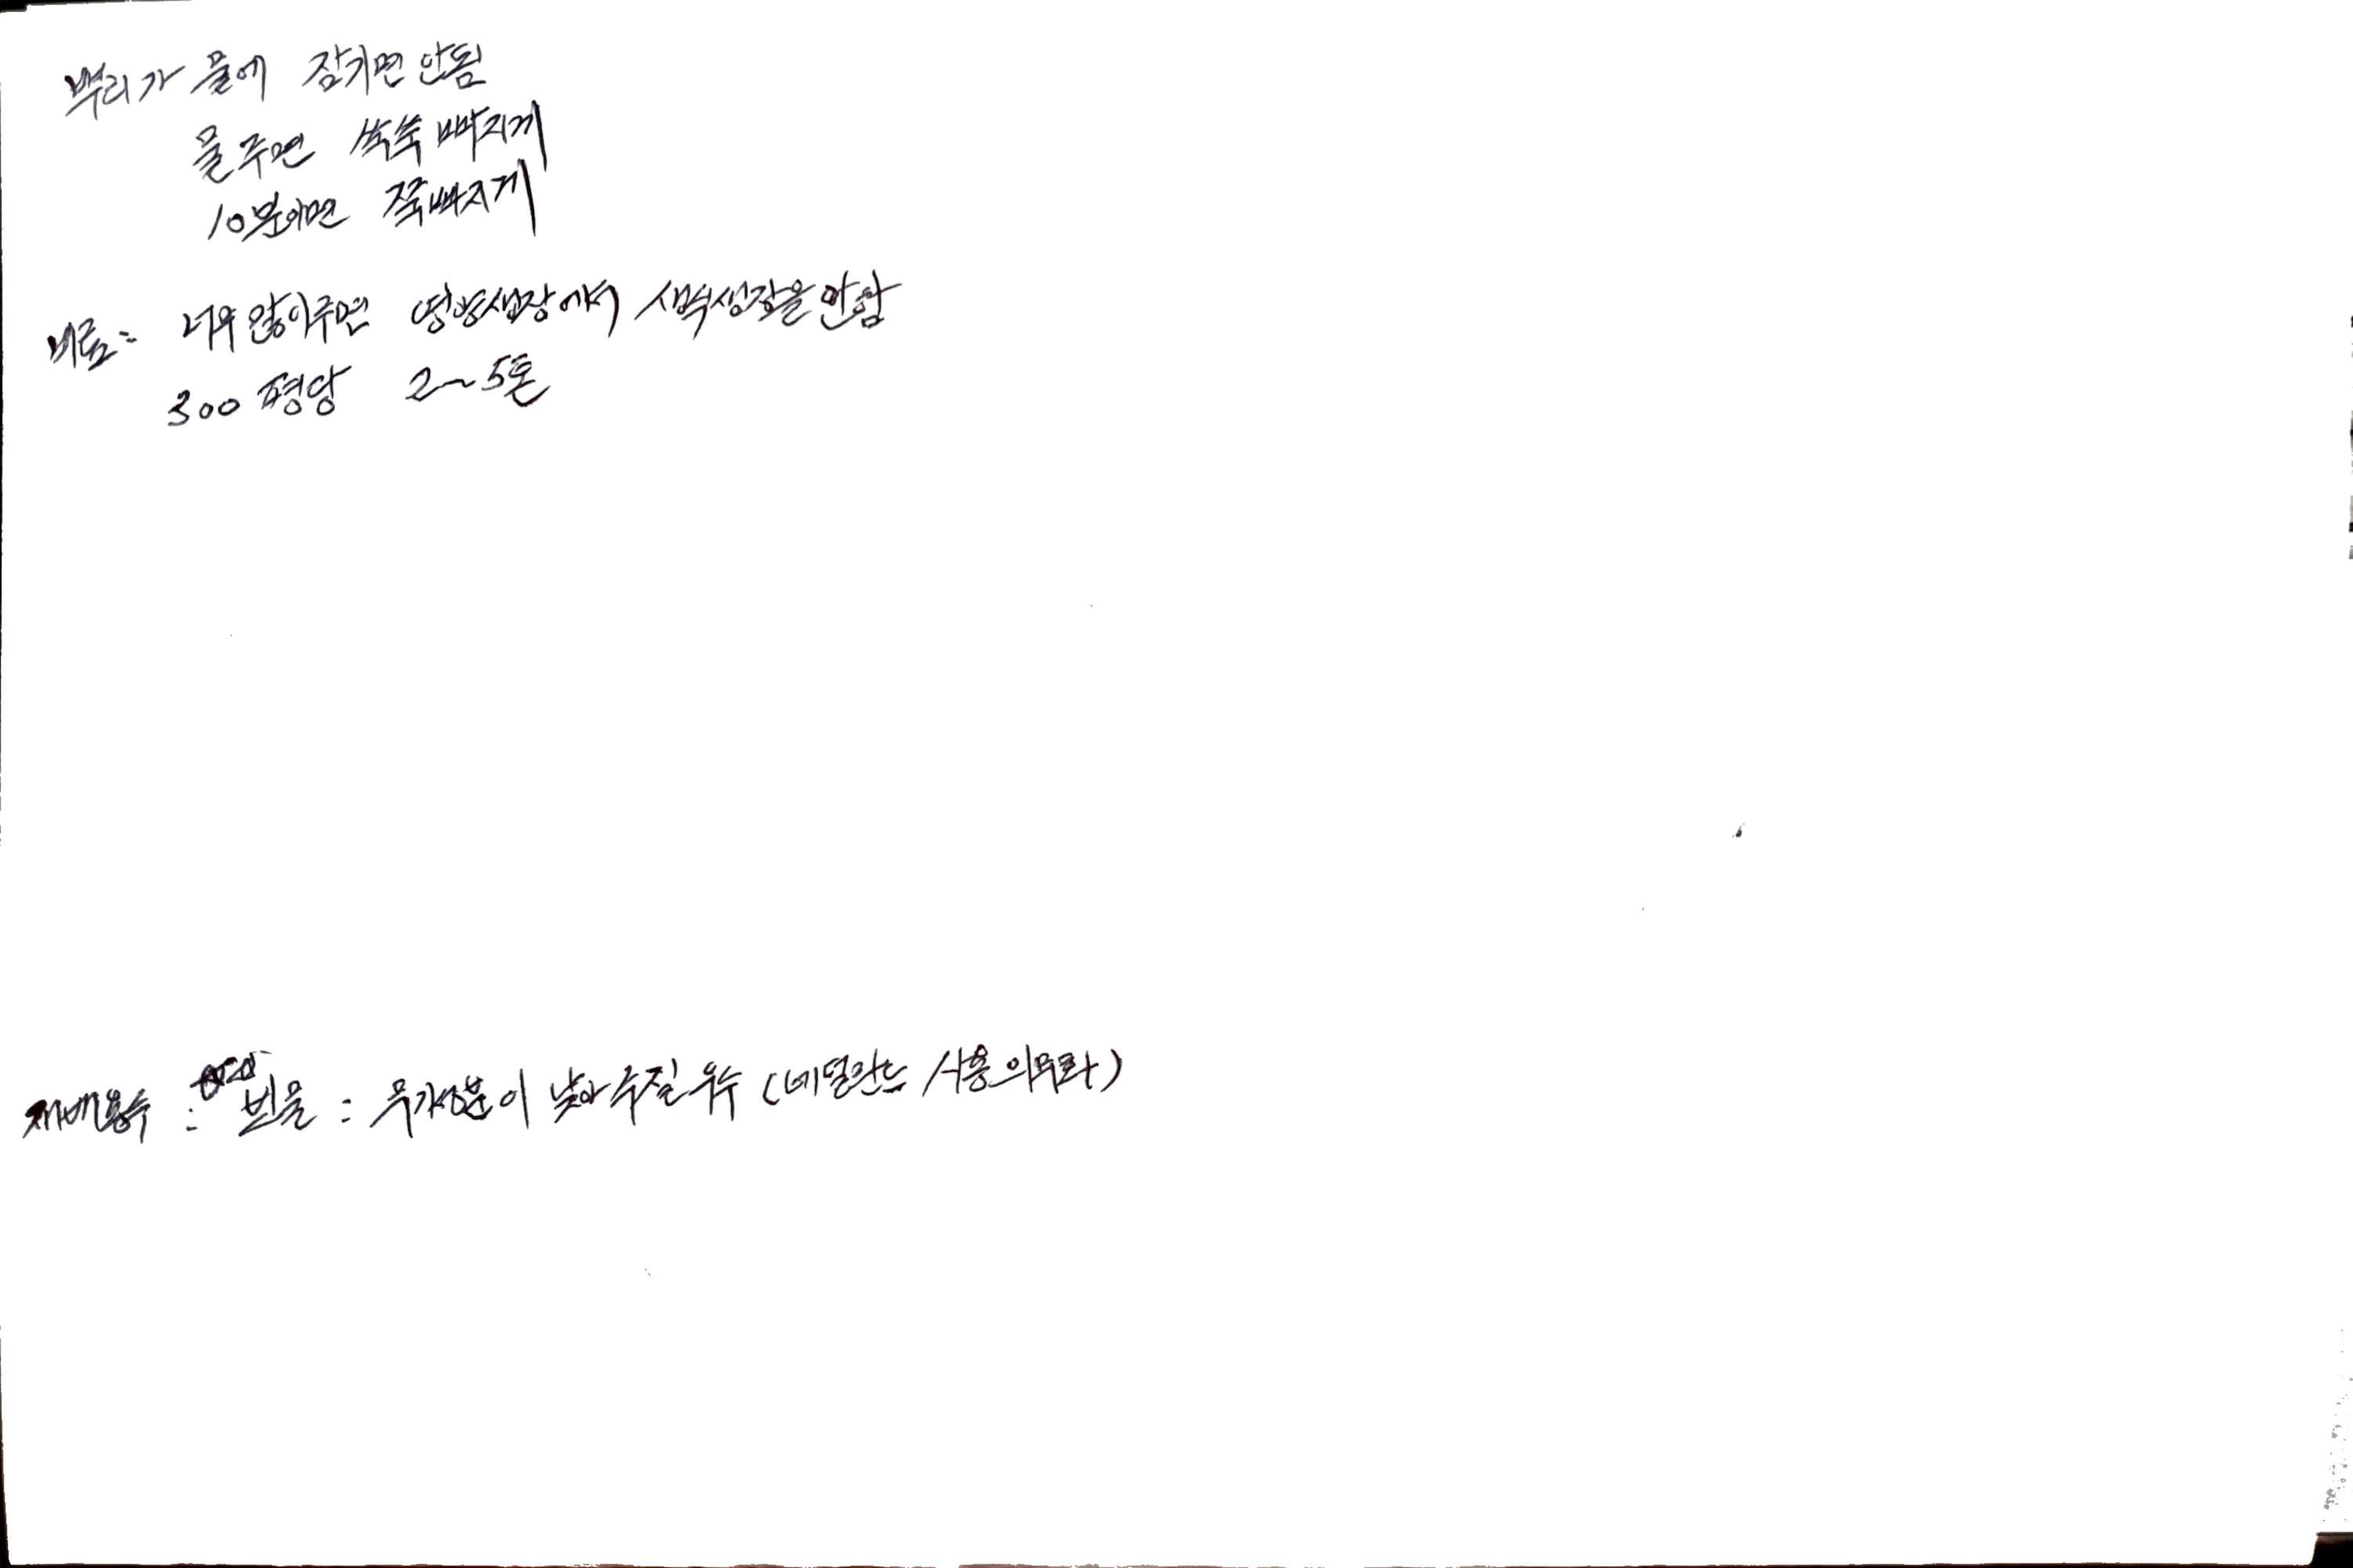 뿌리가 물에 잠기면 안됨
물주면 쑥쑥 빠지게
10분이면 쭉빠지게
비료: 너무 많이주면 영양생장에서 생식성장을 안함
300평당 2~5톤
재배용수 : 빗물 : 무기성분이 낮아 수질우수 (네덜란드 사용의무화)